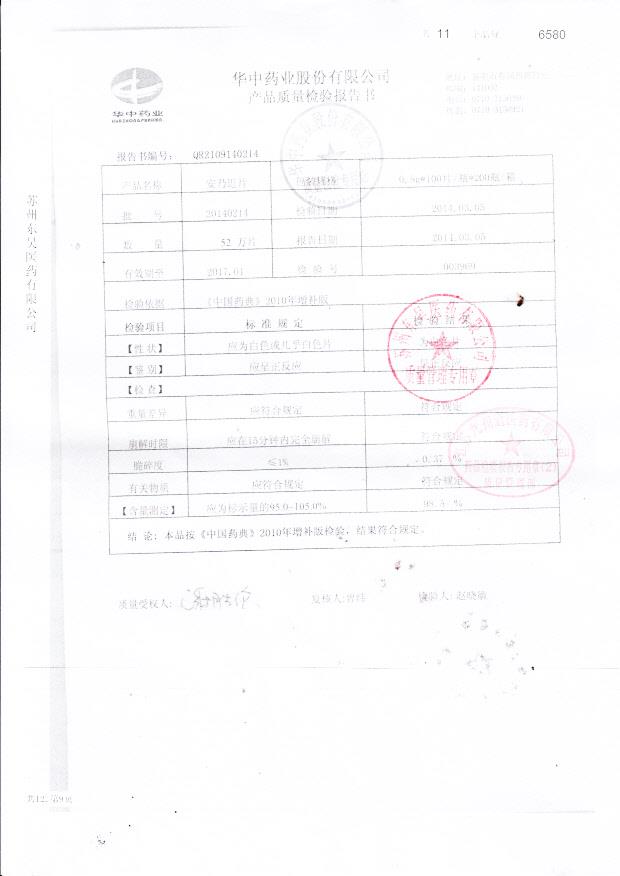 11
6580
华中药业股份有限公司
产品质量检验报告书
华中药业
报告书编号： QB2109140214
产品名称 安乃近片 0.5g*100片/瓶*200瓶/箱
批 号 20140214 检验日期 2014.03.05
数 量 52 万片 报告日期 2014.03.05
有效期至 2017.01 检 验 号 003969
检验依据 《中国药典》2010年增补版
检验项目 标 准 规 定 检 验 结 果
【性 状】 应为白色或几乎白色片
【鉴 别】 应呈正反应
【检 查】
重量差异 应符合规定 符合规定
崩解时限 应在15分钟内完全崩解 符合规定
脆碎度 ≤1% 0.37 %
有关物质 应符合规定 符合规定
【含量测定】 应为标示量的95.0-105.0% %
结 论：本品按《中国药典》2010年增补版检验，结果符合规定。
质量受权人： 复核人:曾纬 检验人: 赵晓敏
苏州东吴医药有限公司
质量管理专用章
共12, 第9页